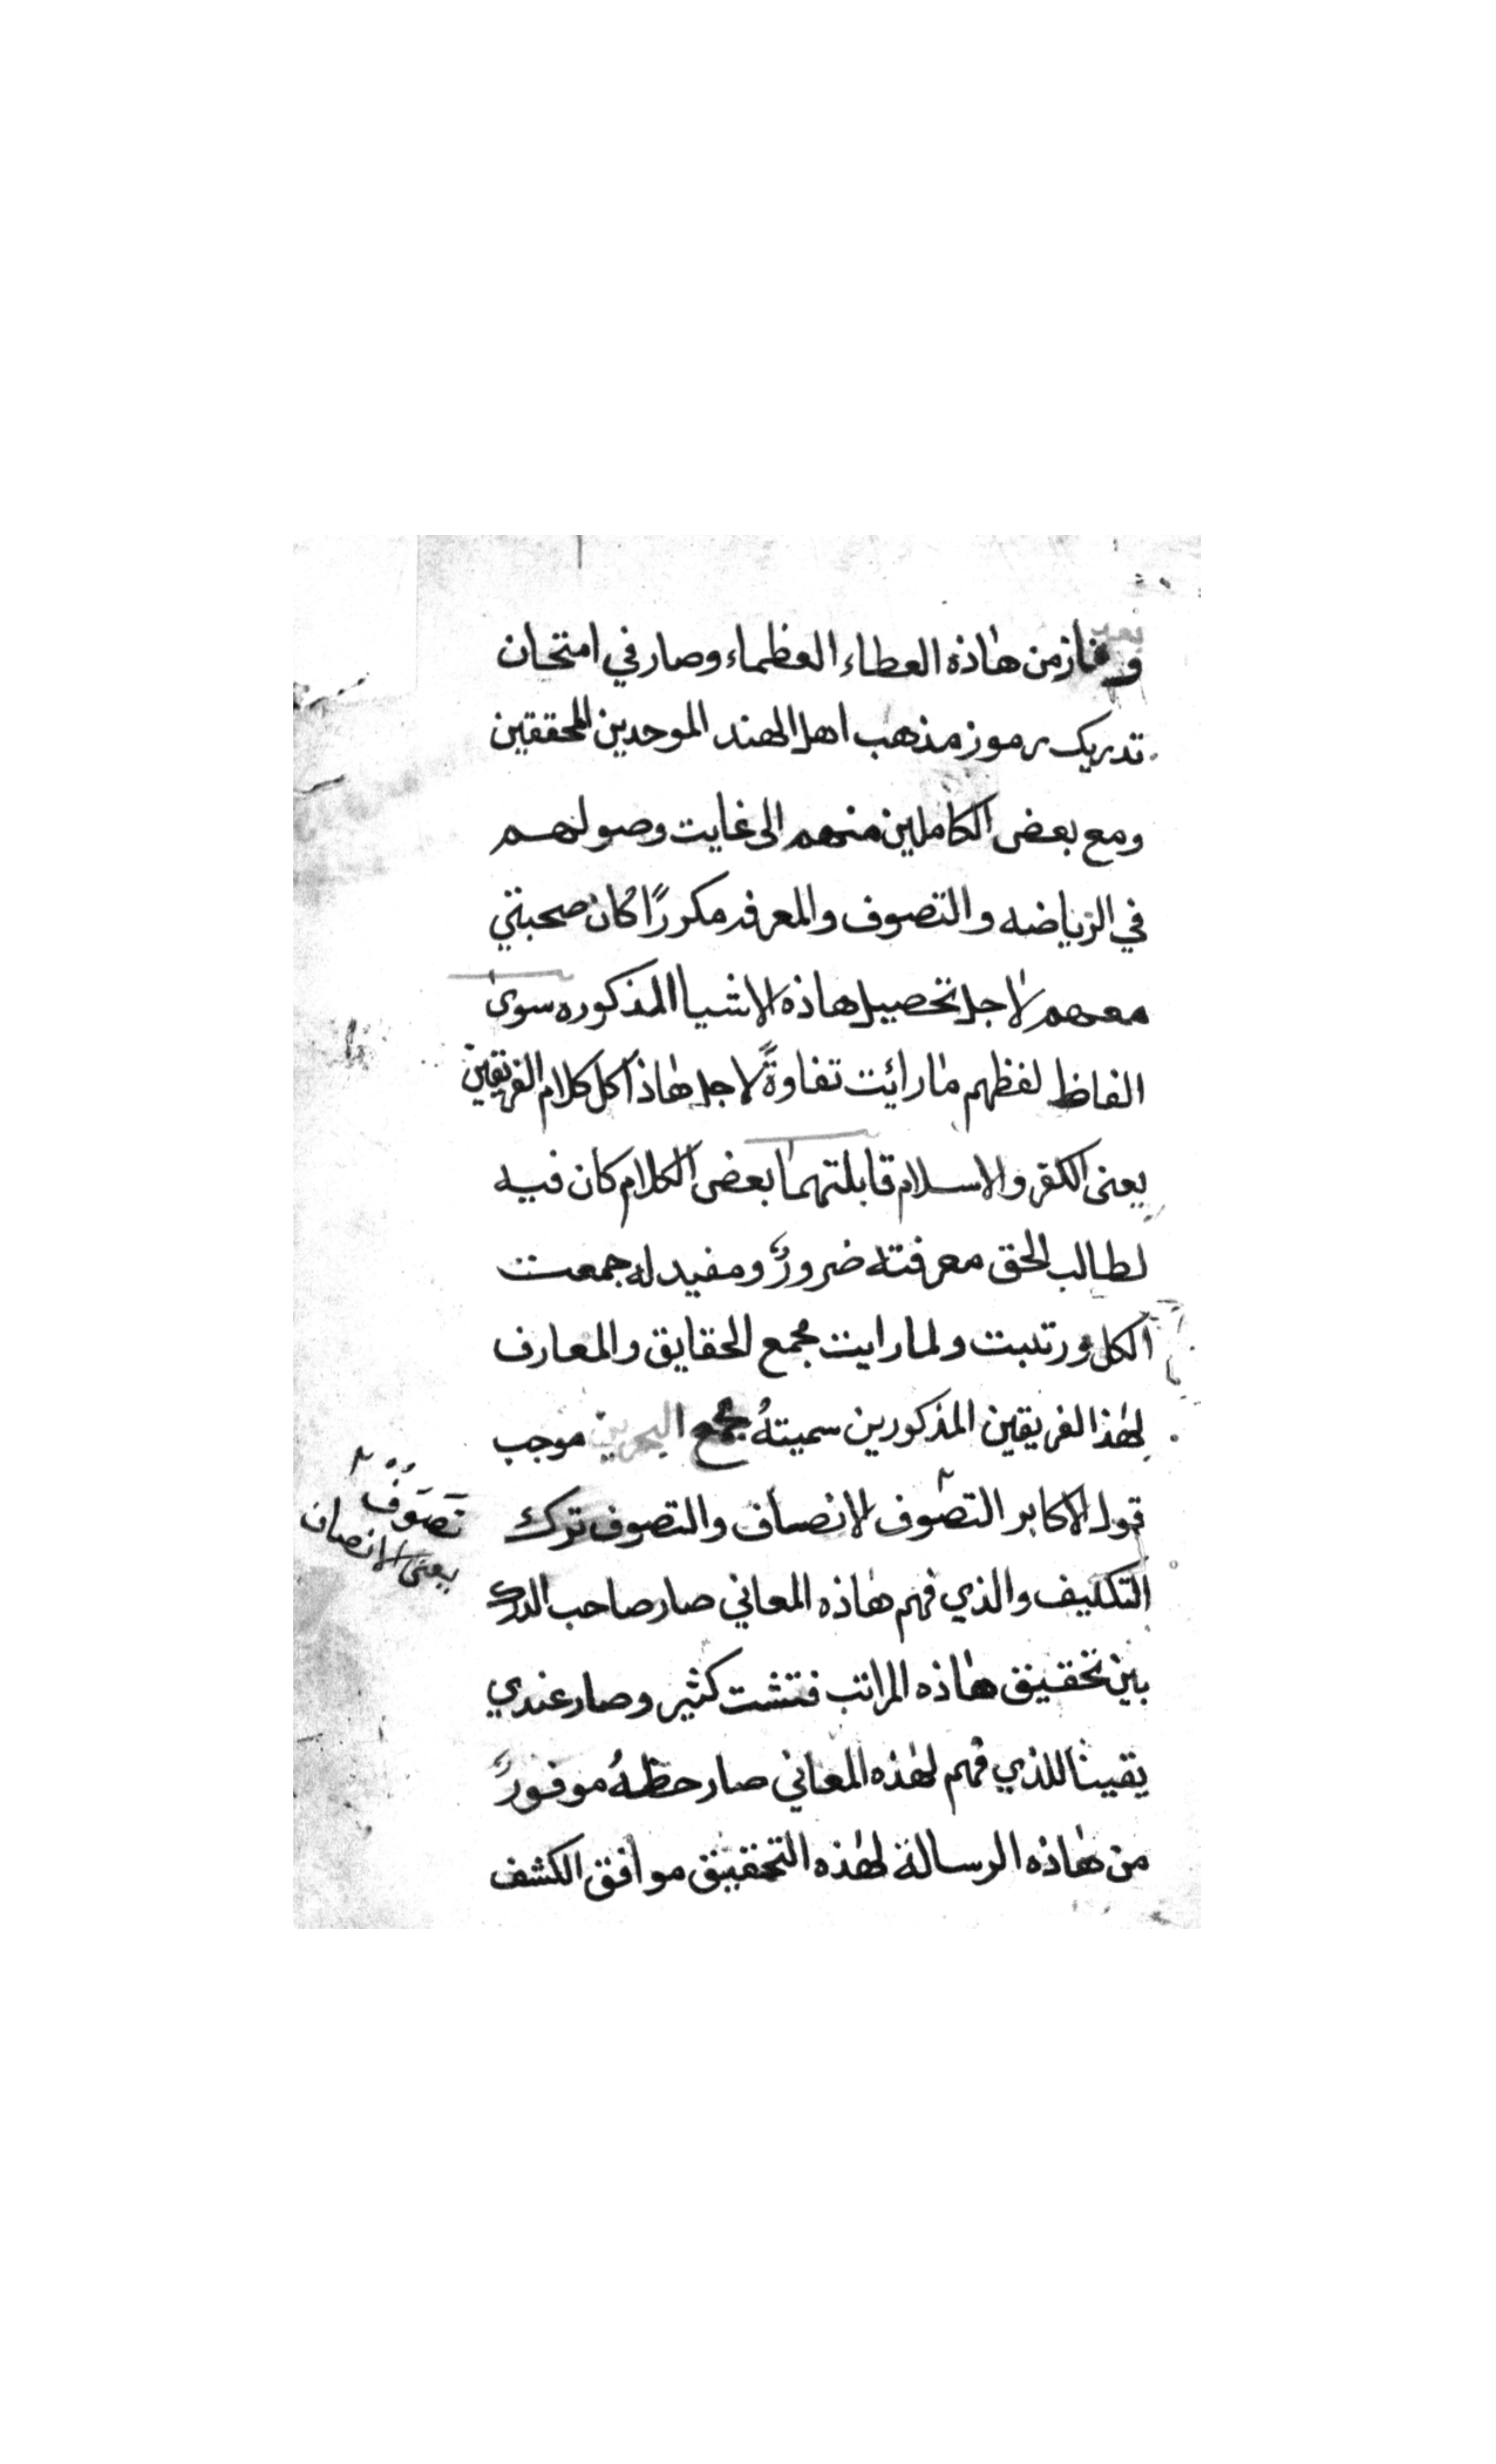 وفاز من هاذه العطاء العظماء وصار في امتحان
تدريك رموز مذهب اهل الهند الموحدين المحققين
ومع بعض الكاملين منهم الى غايت وصولهم
في الرياضه والتصوف والمعرفه مكررًا كان صحبتي
معهم لاجل تحصيل هاذه الاشيا المذكوره سوى
الفاظ لفظهم ما رائت تفاوةً لاجل هاذا كل كلام الفريقين
يعنى الكفر والاسلام قابلتهما بعض الكلام كان فيه
لطالب الحق معرفته ضرورٌ ومفيد له جمعت
الكل ورتبت ولما رايت مجمع الحقايق والمعارف
لهذا الفريقين المذكورين سميتهُ مجمع البحرين موجب
قول الاكابر التصوف الانصاف والتصوف ترك
تصوف
يعنى الانصاف
التكليف والذي فهم هاذه المعاني صار صاحب الدرك
بين تحقيق هاذه المراتب فتشت كثير وصار عندي
يقينا للذي فهم لهذه المعاني صار حظهُ موفورٌ
من هاذه الرسالة لهذه التحقيق موافق الكشف